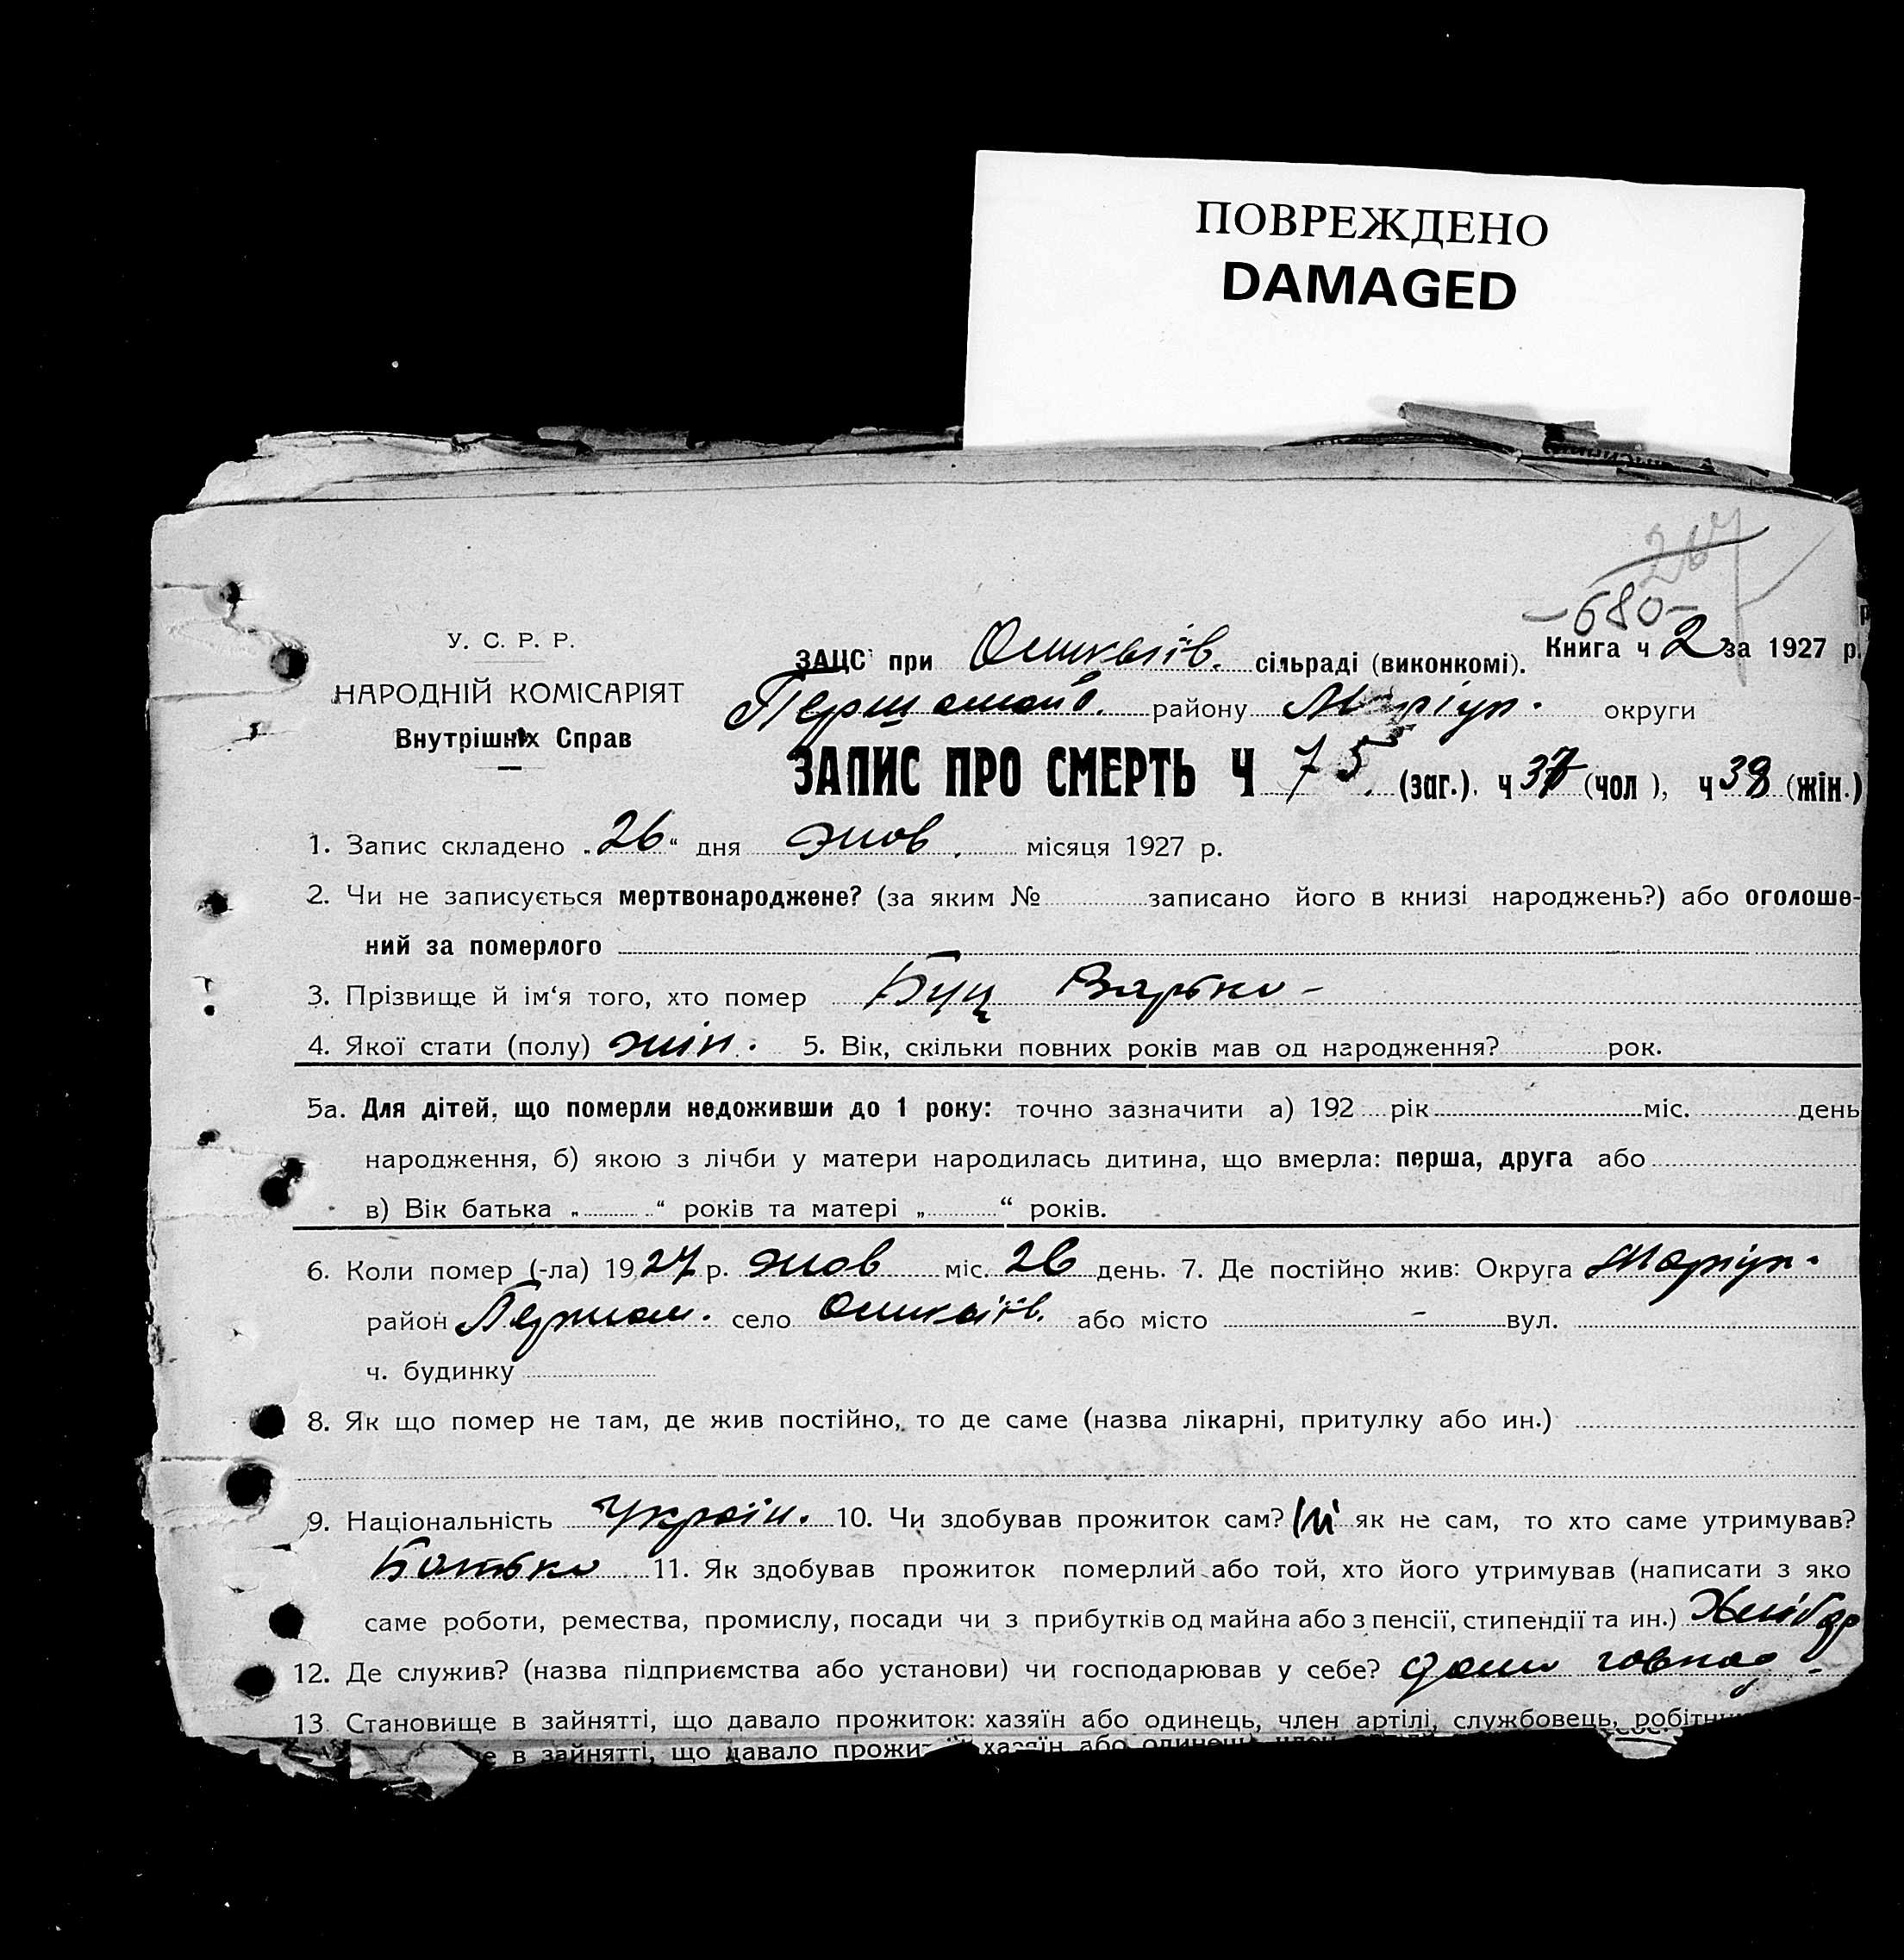 ПОВРЕЖДЕНО
DAMAGED
267
-680-
У. С. Р. Р.
НАРОДНІЙ КОМІСАРІЯТ
Внутрішніх Справ
ЗАЦС при сільраді (виконкомі). Книга ч 2 за 1927 р.
Першомайв. району Маріуп. округи
ЗАПИС ПРО СМЕРТЬ Ч 75 (заг.), ч 37 (чол), ч 38 (жін.)
1. Запис складено „26“ дня жов. місяця 1927 р.
2. Чи не записується мертвонароджене? (за яким № записано його в книзі народжень?) або оголоше-
ний за померлого
3. Прізвище й ім‘я того, хто помер Буц Варька -
4. Якої стати (полу) жін. 5. Вік, скільки повних років мав од народження? рок.
5а. Для дітей, що померли недоживши до 1 року: точно зазначити а) 192 рік міс. день
народження, б) якою з лічби у матери народилась дитина, що вмерла: перша, друга або
в) Вік батька „ “ років та матері „ “ років.
6. Коли помер (-ла) 1927 р. жов міс. 26 день. 7. Де постійно жив: Округа Маріуп.
район Першом. село або місто - вул.
ч. будинку
8. Як що помер не там, де жив постійно, то де саме (назва лікарні, притулку або ин.)
9. Національність Україн. 10. Чи здобував прожиток сам? Ні як не сам, то хто саме утримував?
Батько 11. Як здобував прожиток померлий або той, хто його утримував (написати з яко
саме роботи, ремества, промислу, посади чи з прибутків од майна або з пенсії, стипендії та ин.) Хлібор
12. Де служив? (назва підприємства або установи) чи господарював у себе?
13. Становище в зайнятті, що давало прожиток: хазяїн або одинець, член артілі, службовець, робітни
е в зайнятті, що давало прожи хазяїн або одинець